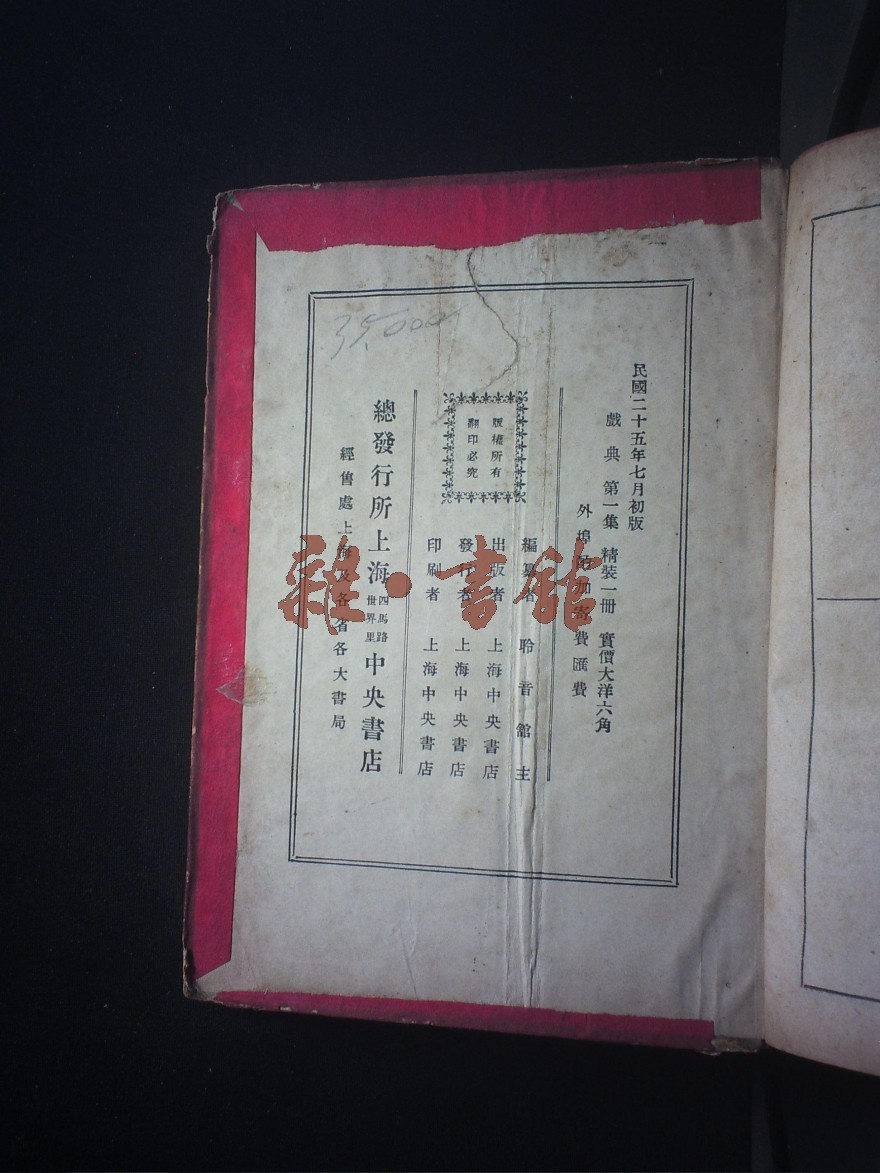 民國二十五年七月初版
戲典 第一集 精裝一冊 實價大洋六角
外埠酌加寄費匯費
版權所有
翻印必究
編纂者 聆音館主
出版者 上海中央書店
發行者 上海中央書店
印刷者 上海中央書店
總發行所上海四馬路世界里中央書店
經售處上海及各省各大書局
35,000
雜·書館